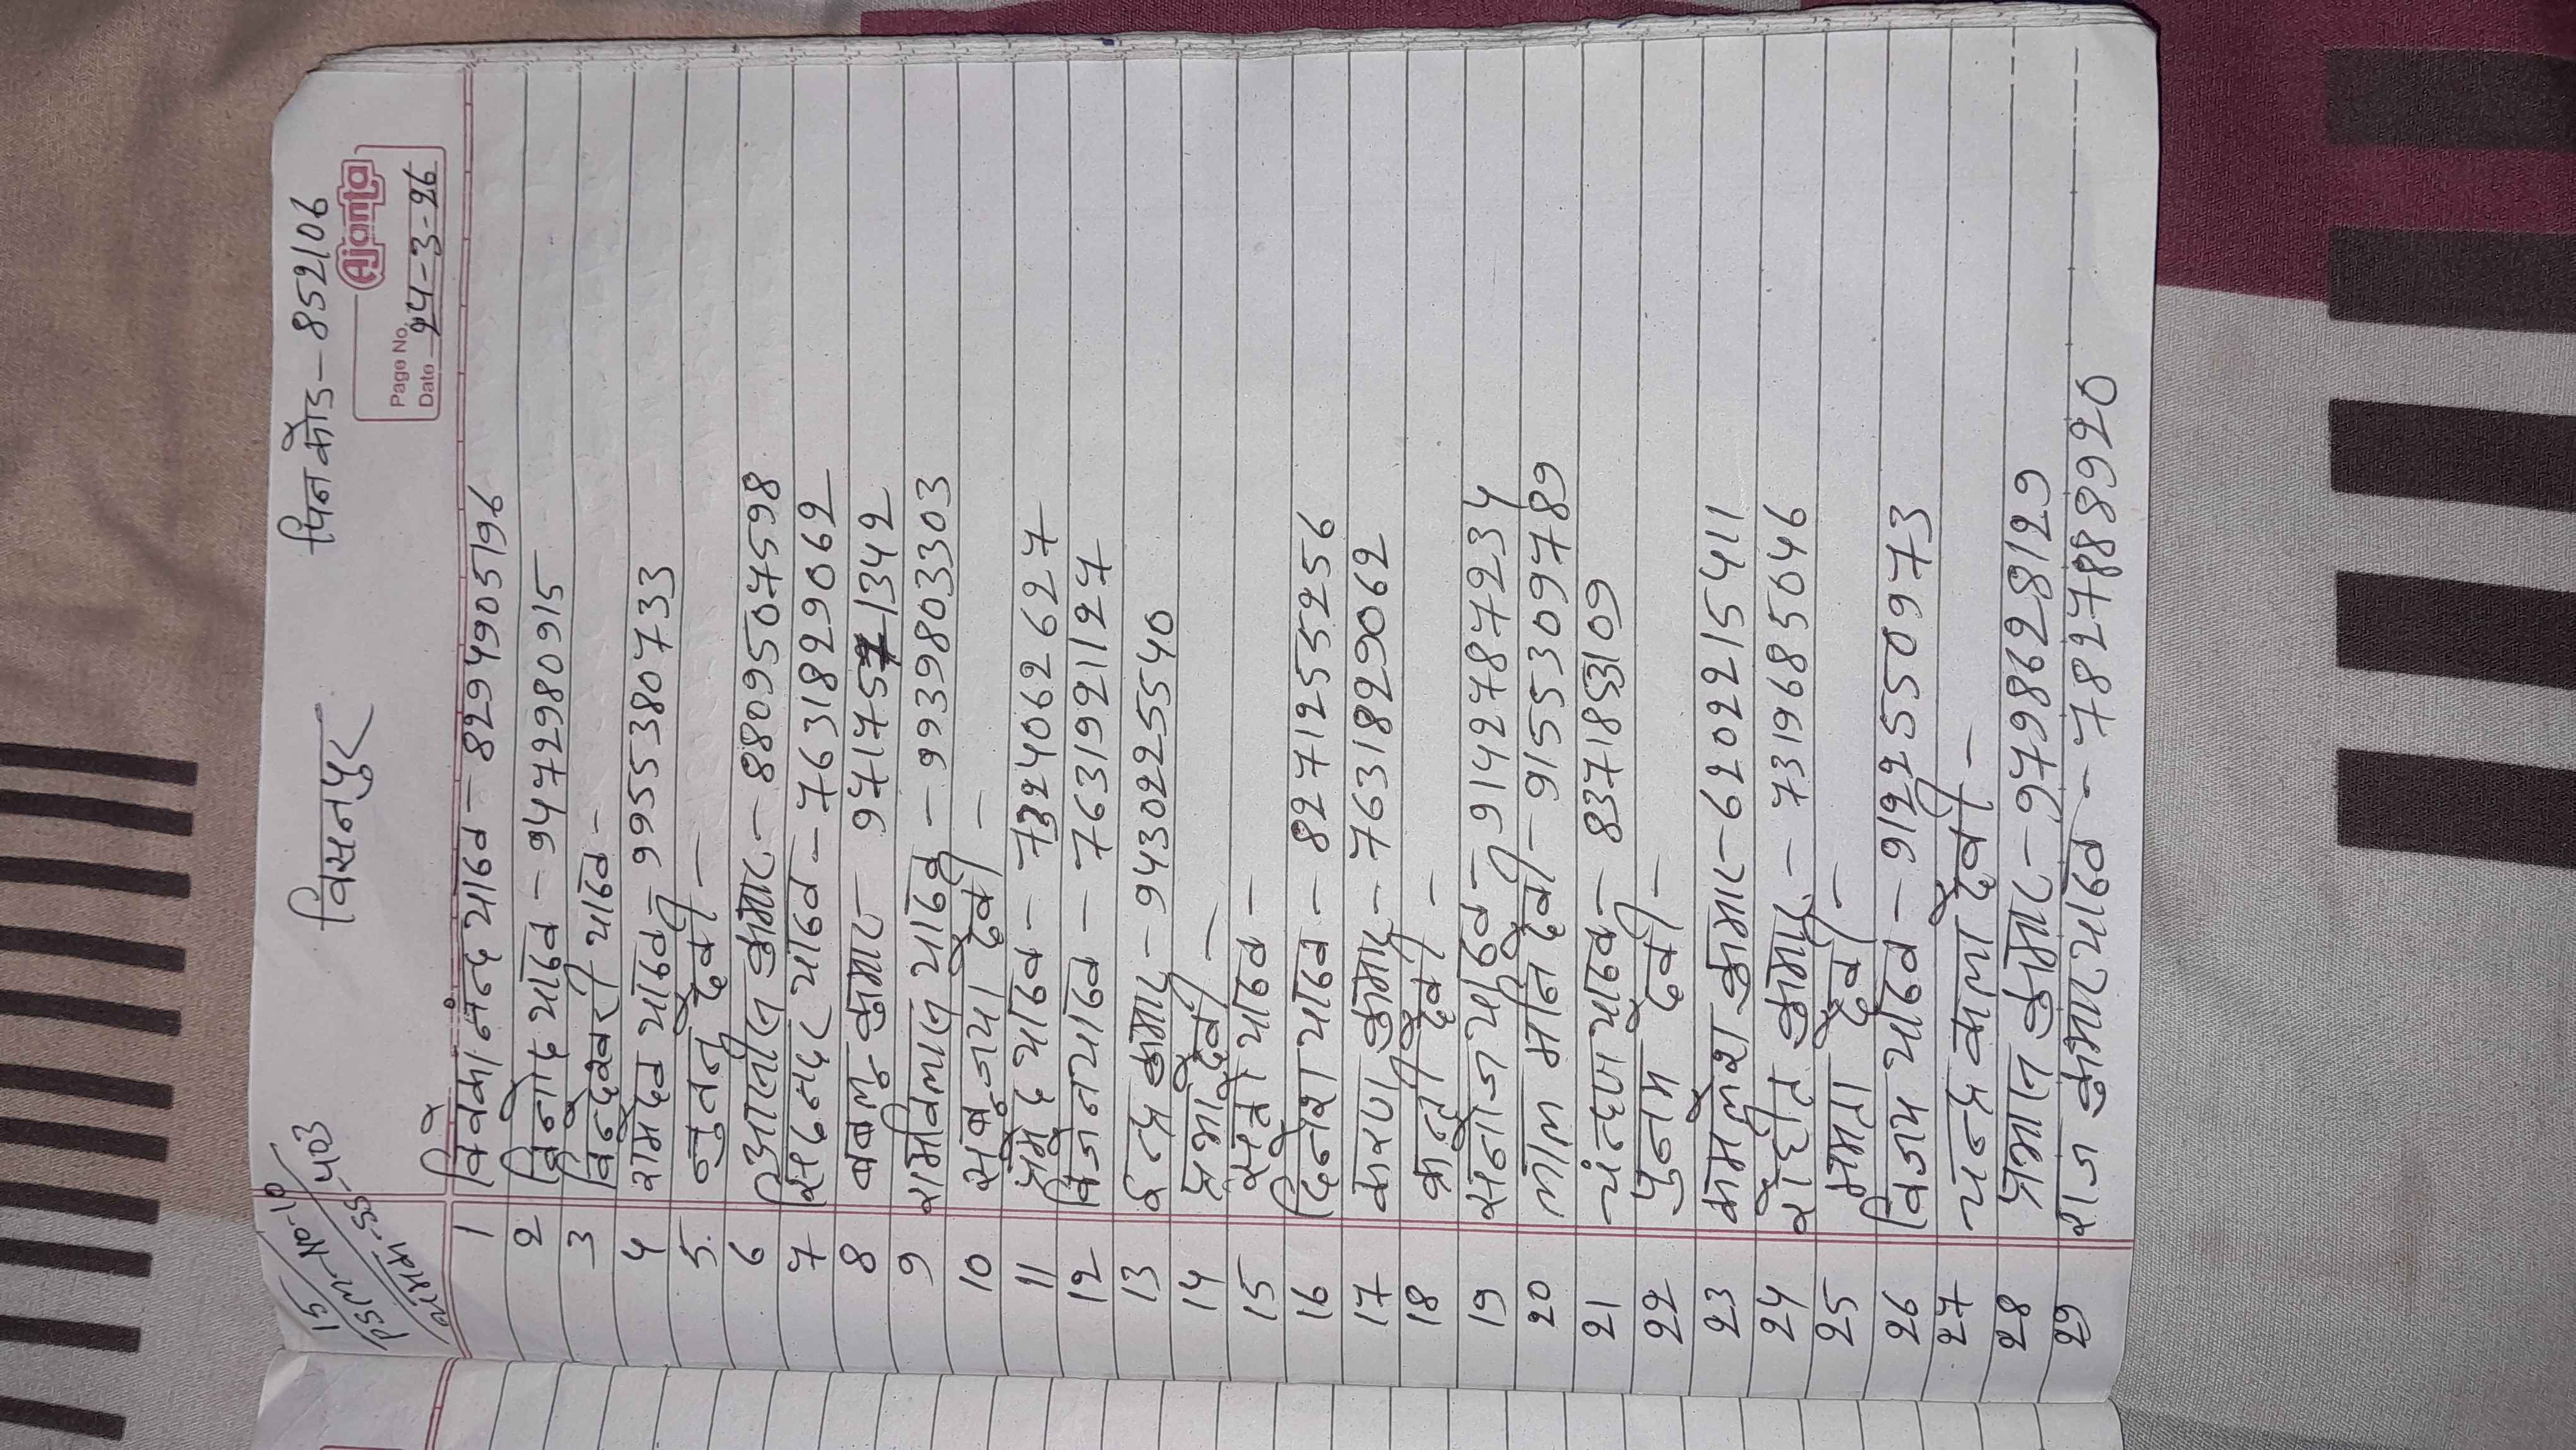 15/ No-10
PSM-SS-403
विसनपुर
पिन कोड - 852106
Ajanta
Page No.
Date 24-3-26
1 विवेकानंन्द यादव - 8294905196
2 विनोद यादव - 9472980915
3 विन्देश्वरी यादव -
4 रामदेव यादव - 9955380733
5. नुतन देवी -
6 रिआलील कुमार - 8809507598
7 सदन्दर यादव - 7631829062
8 बबलु कुमार - 9717571342
9 रामविलास यादव - 9939803303
10 सबुजया देवी -
11 प्रमोद यादव - 7324062627
12 विजन यादव - 7631921127
13 इन्द्र कुमार - 9430225540
14 प्रभा देवी -
15 सत्रो यादव -
16 दिनेश यादव - 8271255256
17 करण कुमार - 7631829062
18 क्रान्ती देवी -
19 सनोज यादव - 9142787234
20 लाल मनि देवी - 9155309789
21 चंन्दन यादव - 8371853109
22 पुनम देवी -
23 कमलेश कुमार - 6202215411
24 रोहीत कुमार - 7319685046
25 ममता देवी -
26 विजय यादव - 9122550973
27 चन्द्रकला देवी -
28 प्रभात कुमार - 9798628129
29 राज कुमार यादव - 7827888920